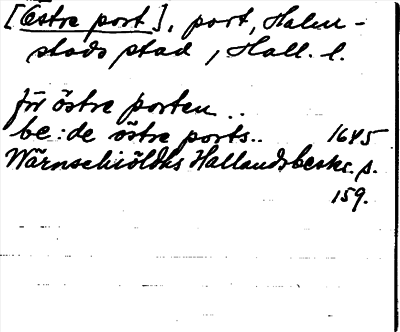 [Östre port], port, Halm-
stads stad, Hall. l.
för östre porten ..
be:de östre ports.. 1645
Wärnschiöldhs Hallandsbeskr. s.
159.